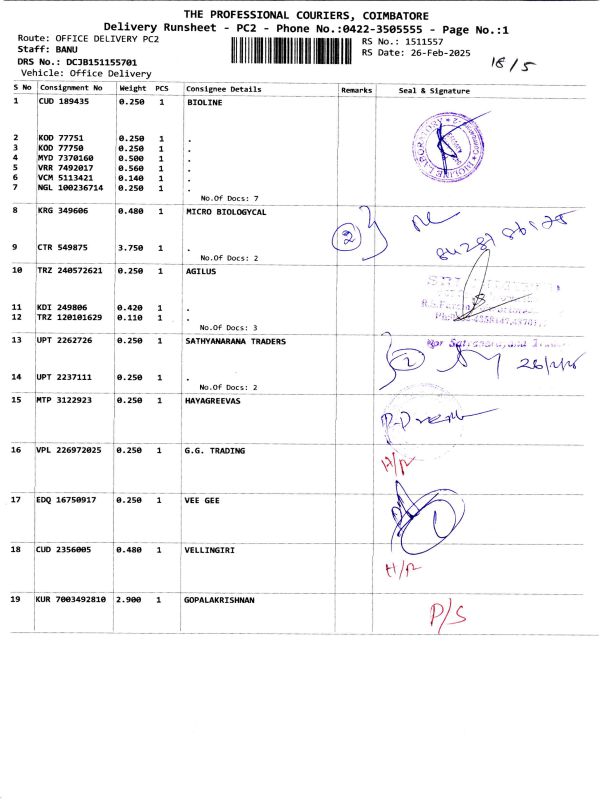 THE PROFESSIONAL COURIERS, COIMBATORE
Delivery Runsheet - PC2 - Phone No.:0422-3505555 - Page No.:1
Route: OFFICE DELIVERY PC2
Staff: BANU
DRS No.: DCJB151155701
Vehicle: Office Delivery
RS No.: 1511557
RS Date: 26-Feb-2025
18/5
S No Consignment No Weight PCS Consignee Details Remarks Seal & Signature
1 CUD 189435 0.250 1 BIOLINE
2 KOD 77751 0.250 1 .
3 KOD 77750 0.250 1 .
4 MYD 7370160 0.500 1 .
5 VRR 7492017 0.560 1 .
6 VCM 5113421 0.140 1 .
7 NGL 100236714 0.250 1 .
No.Of Docs: 7
BIOLINE LABORATORY
8 KRG 349606 0.480 1 MICRO BIOLOGYCAL
2
9 CTR 549875 3.750 1 .
No.Of Docs: 2
10 TRZ 240572621 0.250 1 AGILUS
11 KDI 249806 0.420 1 .
12 TRZ 120101629 0.110 1 .
No.Of Docs: 3
13 UPT 2262726 0.250 1 SATHYANARANA TRADERS
26/2/25
14 UPT 2237111 0.250 1 .
No.Of Docs: 2
15 MTP 3122923 0.250 1 HAYAGREEVAS
16 VPL 226972025 0.250 1 G.G. TRADING
H/R
17 EDQ 16750917 0.250 1 VEE GEE
18 CUD 2356005 0.480 1 VELLINGIRI
H/R
19 KUR 7003492810 2.900 1 GOPALAKRISHNAN
P/S